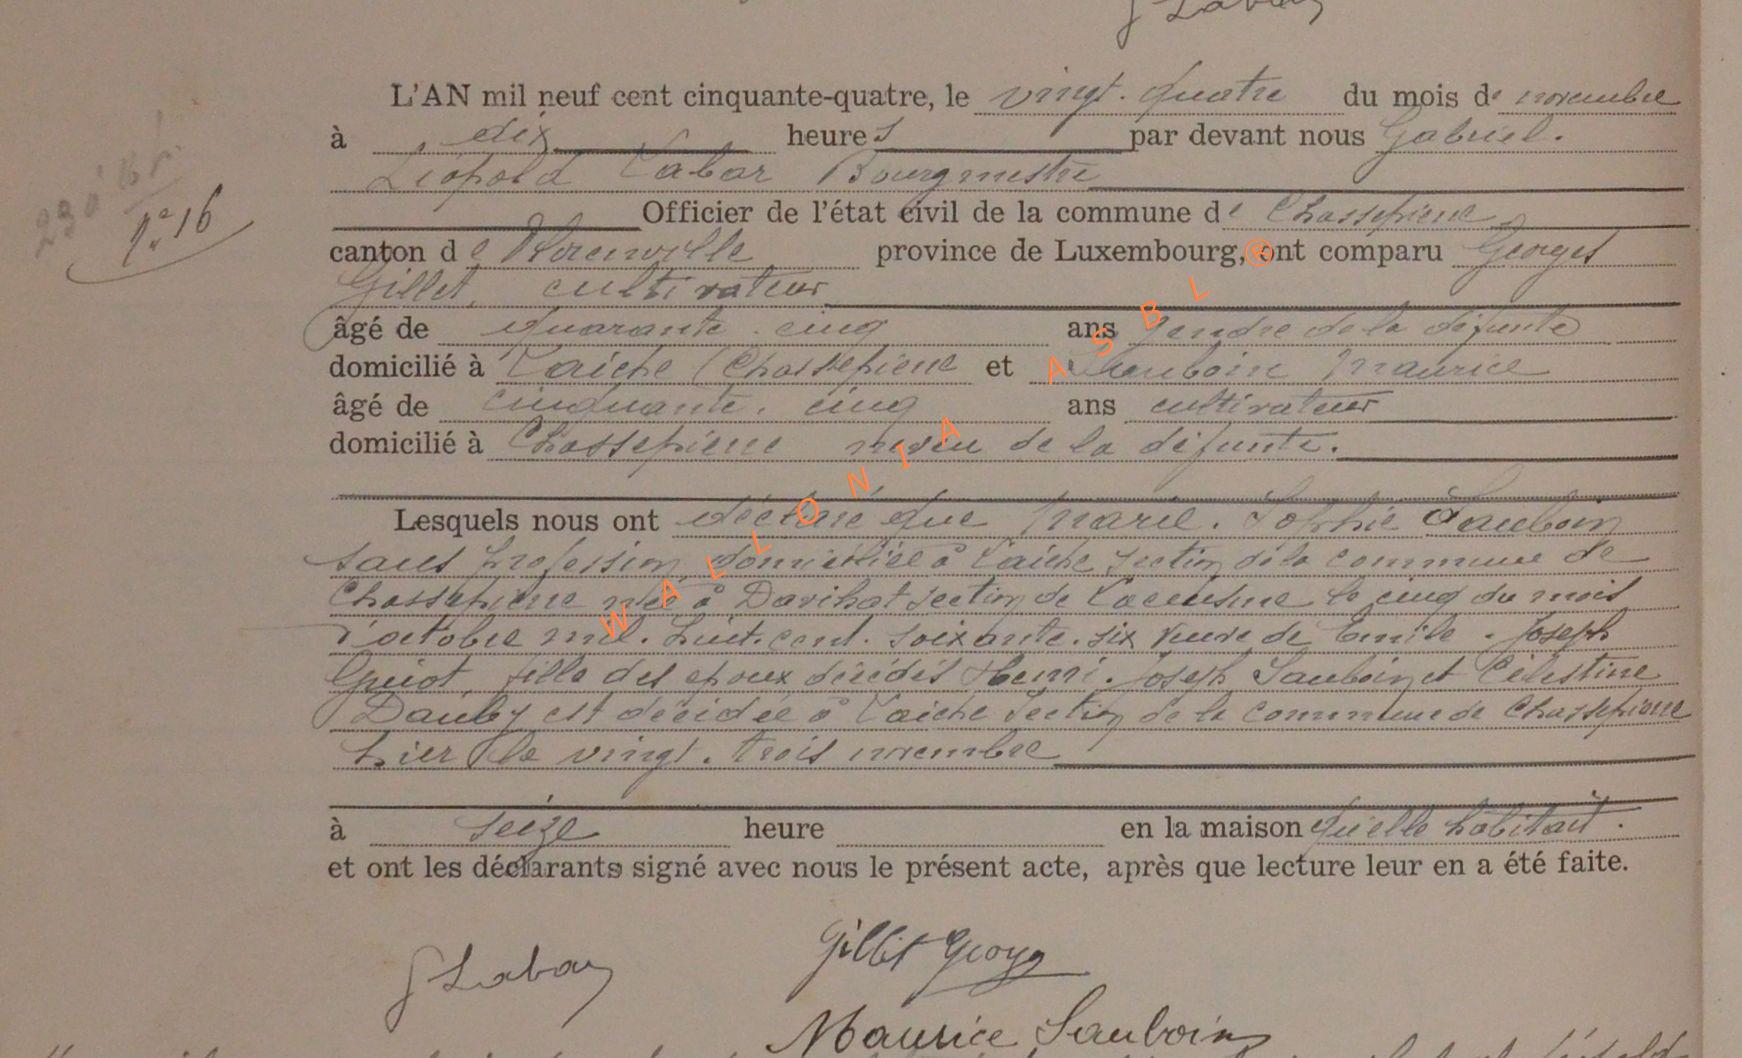 L'AN mil neuf cent cinquante-quatre, le vingt-quatre du mois de novembre
à dix heures par devant nous Gabriel.
Léopold Labar Bourgmestre
Officier de l'état civil de la commune de Chassepierre
n° 16
canton de Florenville province de Luxembourg, ont comparu Georges
Gillet, cultivateur
âgé de quarante-cinq ans gendre de la défunte
domicilié à Laiche (Chassepierre et Sauboin Maurice
âgé de cinquante-cinq ans cultivateur
domicilié à Chassepierre neveu de la défunte.
Lesquels nous ont déclaré que Marie-Sophie Sauboin
sans profession, domiciliée à Laiche section de la commune de
Chassepierre née à section de Lacuisine le cinq du mois
d'octobre mil-huit-cent-soixante-six veuve de Emile-Joseph
Guiot, fille des époux décédés Henri-Joseph Sauboin et Célestine
Dauby est décédée à Laiche section de la commune de Chassepierre
hier le vingt-trois novembre
à seize heure en la maison qu'elle habitait.
et ont les déclarants signé avec nous le présent acte, après que lecture leur en a été faite.
G Labar
Gillet Georges
Maurice Sauboin
WALLONIA ASBL ®